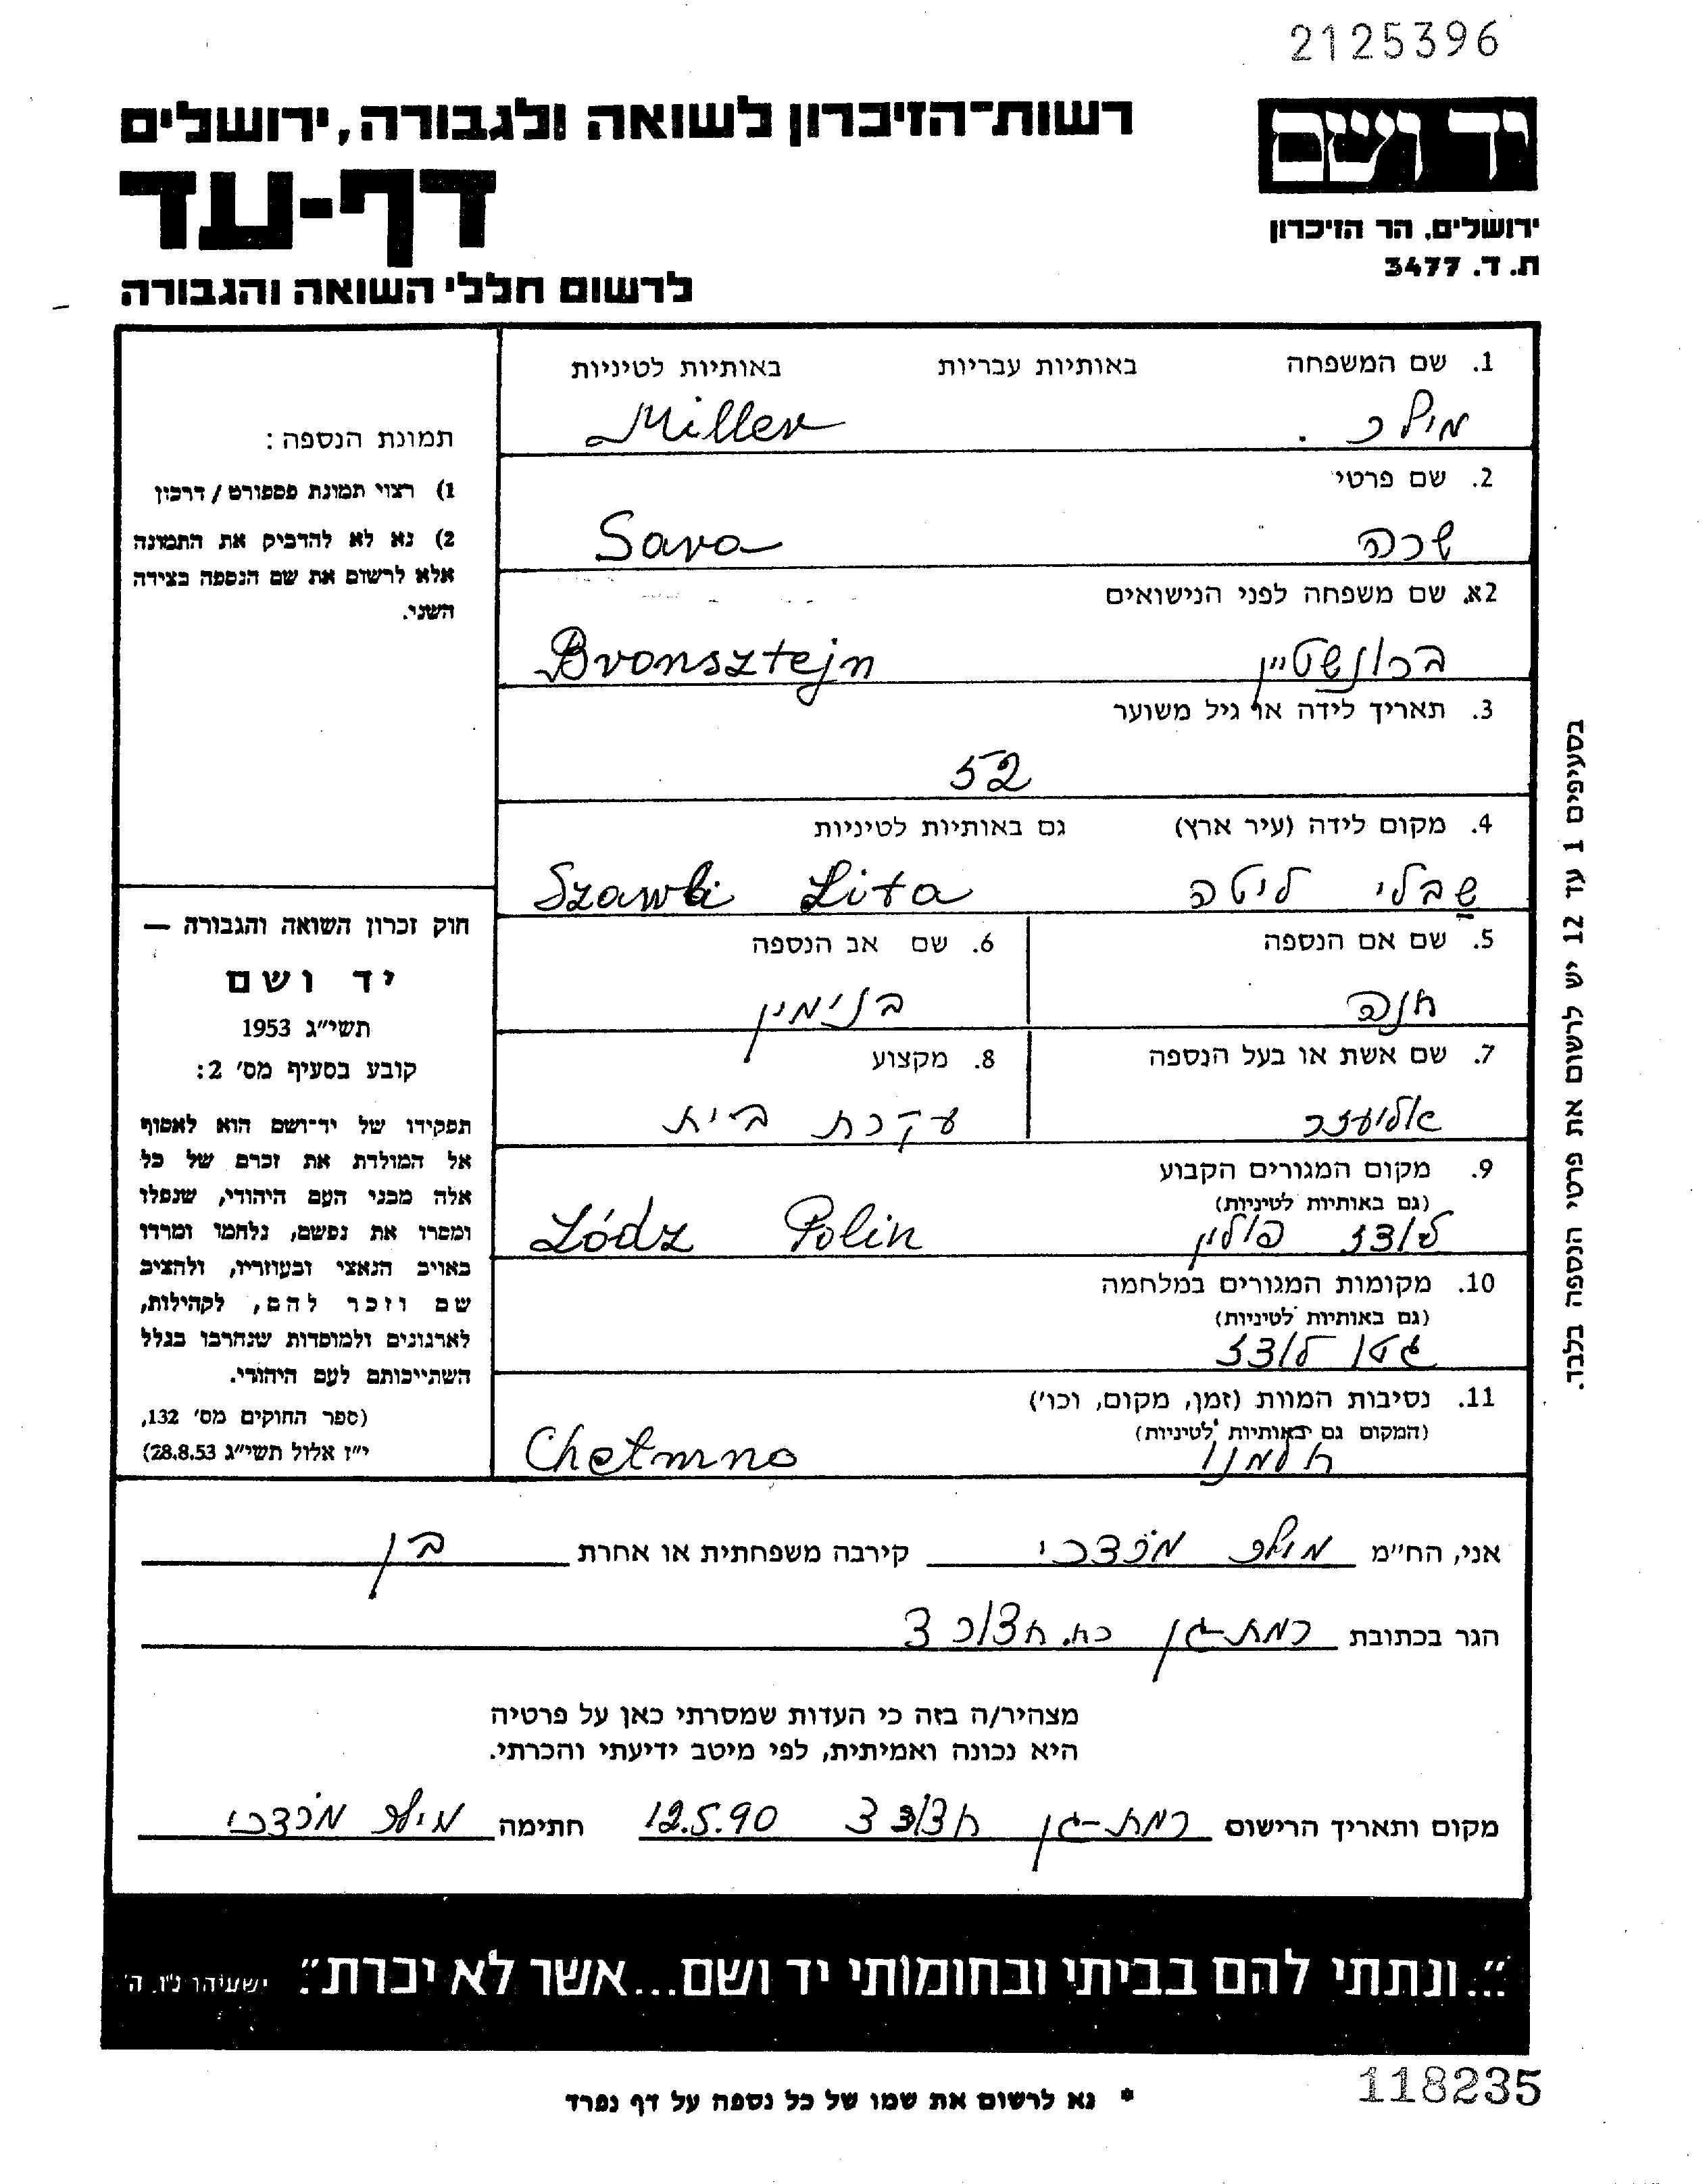 2125396
רשות־הזיכרון לשואה ולגבורה, ירושלים
יד ושם
דף-עד
ירושלים, הר הזיכרון
ת. ד. 3477
לרשום חללי השואה והגבורה
1. שם המשפחה באותיות עבריות באותיות לטיניות
מילר Miller
2. שם פרטי
שרה Sara
2א. שם משפחה לפני הנישואים
ברונשטיין Bronsztejn
3. תאריך לידה או גיל משוער
52
4. מקום לידה (עיר ארץ) גם באותיות לטיניות
שבלי ליטה Szawli Lita
5. שם אם הנספה 6. שם אב הנספה
חנה בנימין
7. שם אשת או בעל הנספה 8. מקצוע
אליעזר עקרת בית
9. מקום המגורים הקבוע
(גם באותיות לטיניות)
לודז פולין Łódz Polin
10. מקומות המגורים במלחמה
(גם באותיות לטיניות)
גטו לודז
11. נסיבות המוות (זמן, מקום, וכו')
(המקום גם באותיות לטיניות)
חלמנו Chełmno
תמונת הנספה:
1) רצוי תמונת פספורט / דרכון
2) נא לא להדביק את התמונה
אלא לרשום את שם הנספה בצידה
השני.
חוק זכרון השואה והגבורה —
יד ושם
תשי״ג 1953
קובע בסעיף מס' 2:
תפקידו של יד־ושם הוא לאסוף
אל המולדת את זכרם של כל
אלה מבני העם היהודי, שנפלו
ומסרו את נפשם, נלחמו ומרדו
באויב הנאצי ובעוזריו, ולהציב
שם וזכר להם, לקהילות,
לארגונים ולמוסדות שנחרבו בגלל
השתייכותם לעם היהודי.
(ספר החוקים מס' 132,
י״ז אלול תשי״ג 28.8.53)
בסעיפים 1 עד 12 יש לרשום את פרטי הנספה בלבד.
אני, הח״מ מילר מרדכי קירבה משפחתית או אחרת בן
הגר בכתובת רמת-גן רח. חצור 3
מצהיר/ה בזה כי העדות שמסרתי כאן על פרטיה
היא נכונה ואמיתית, לפי מיטב ידיעתי והכרתי.
מקום ותאריך הרישום רמת-גן חצור 3 12.5.90 חתימה מילר מרדכי
״...ונתתי להם בביתי ובחומותי יד ושם...אשר לא יכרת״. ישעיהו נ״ו, ה'
118235
* נא לרשום את שמו של כל נספה על דף נפרד